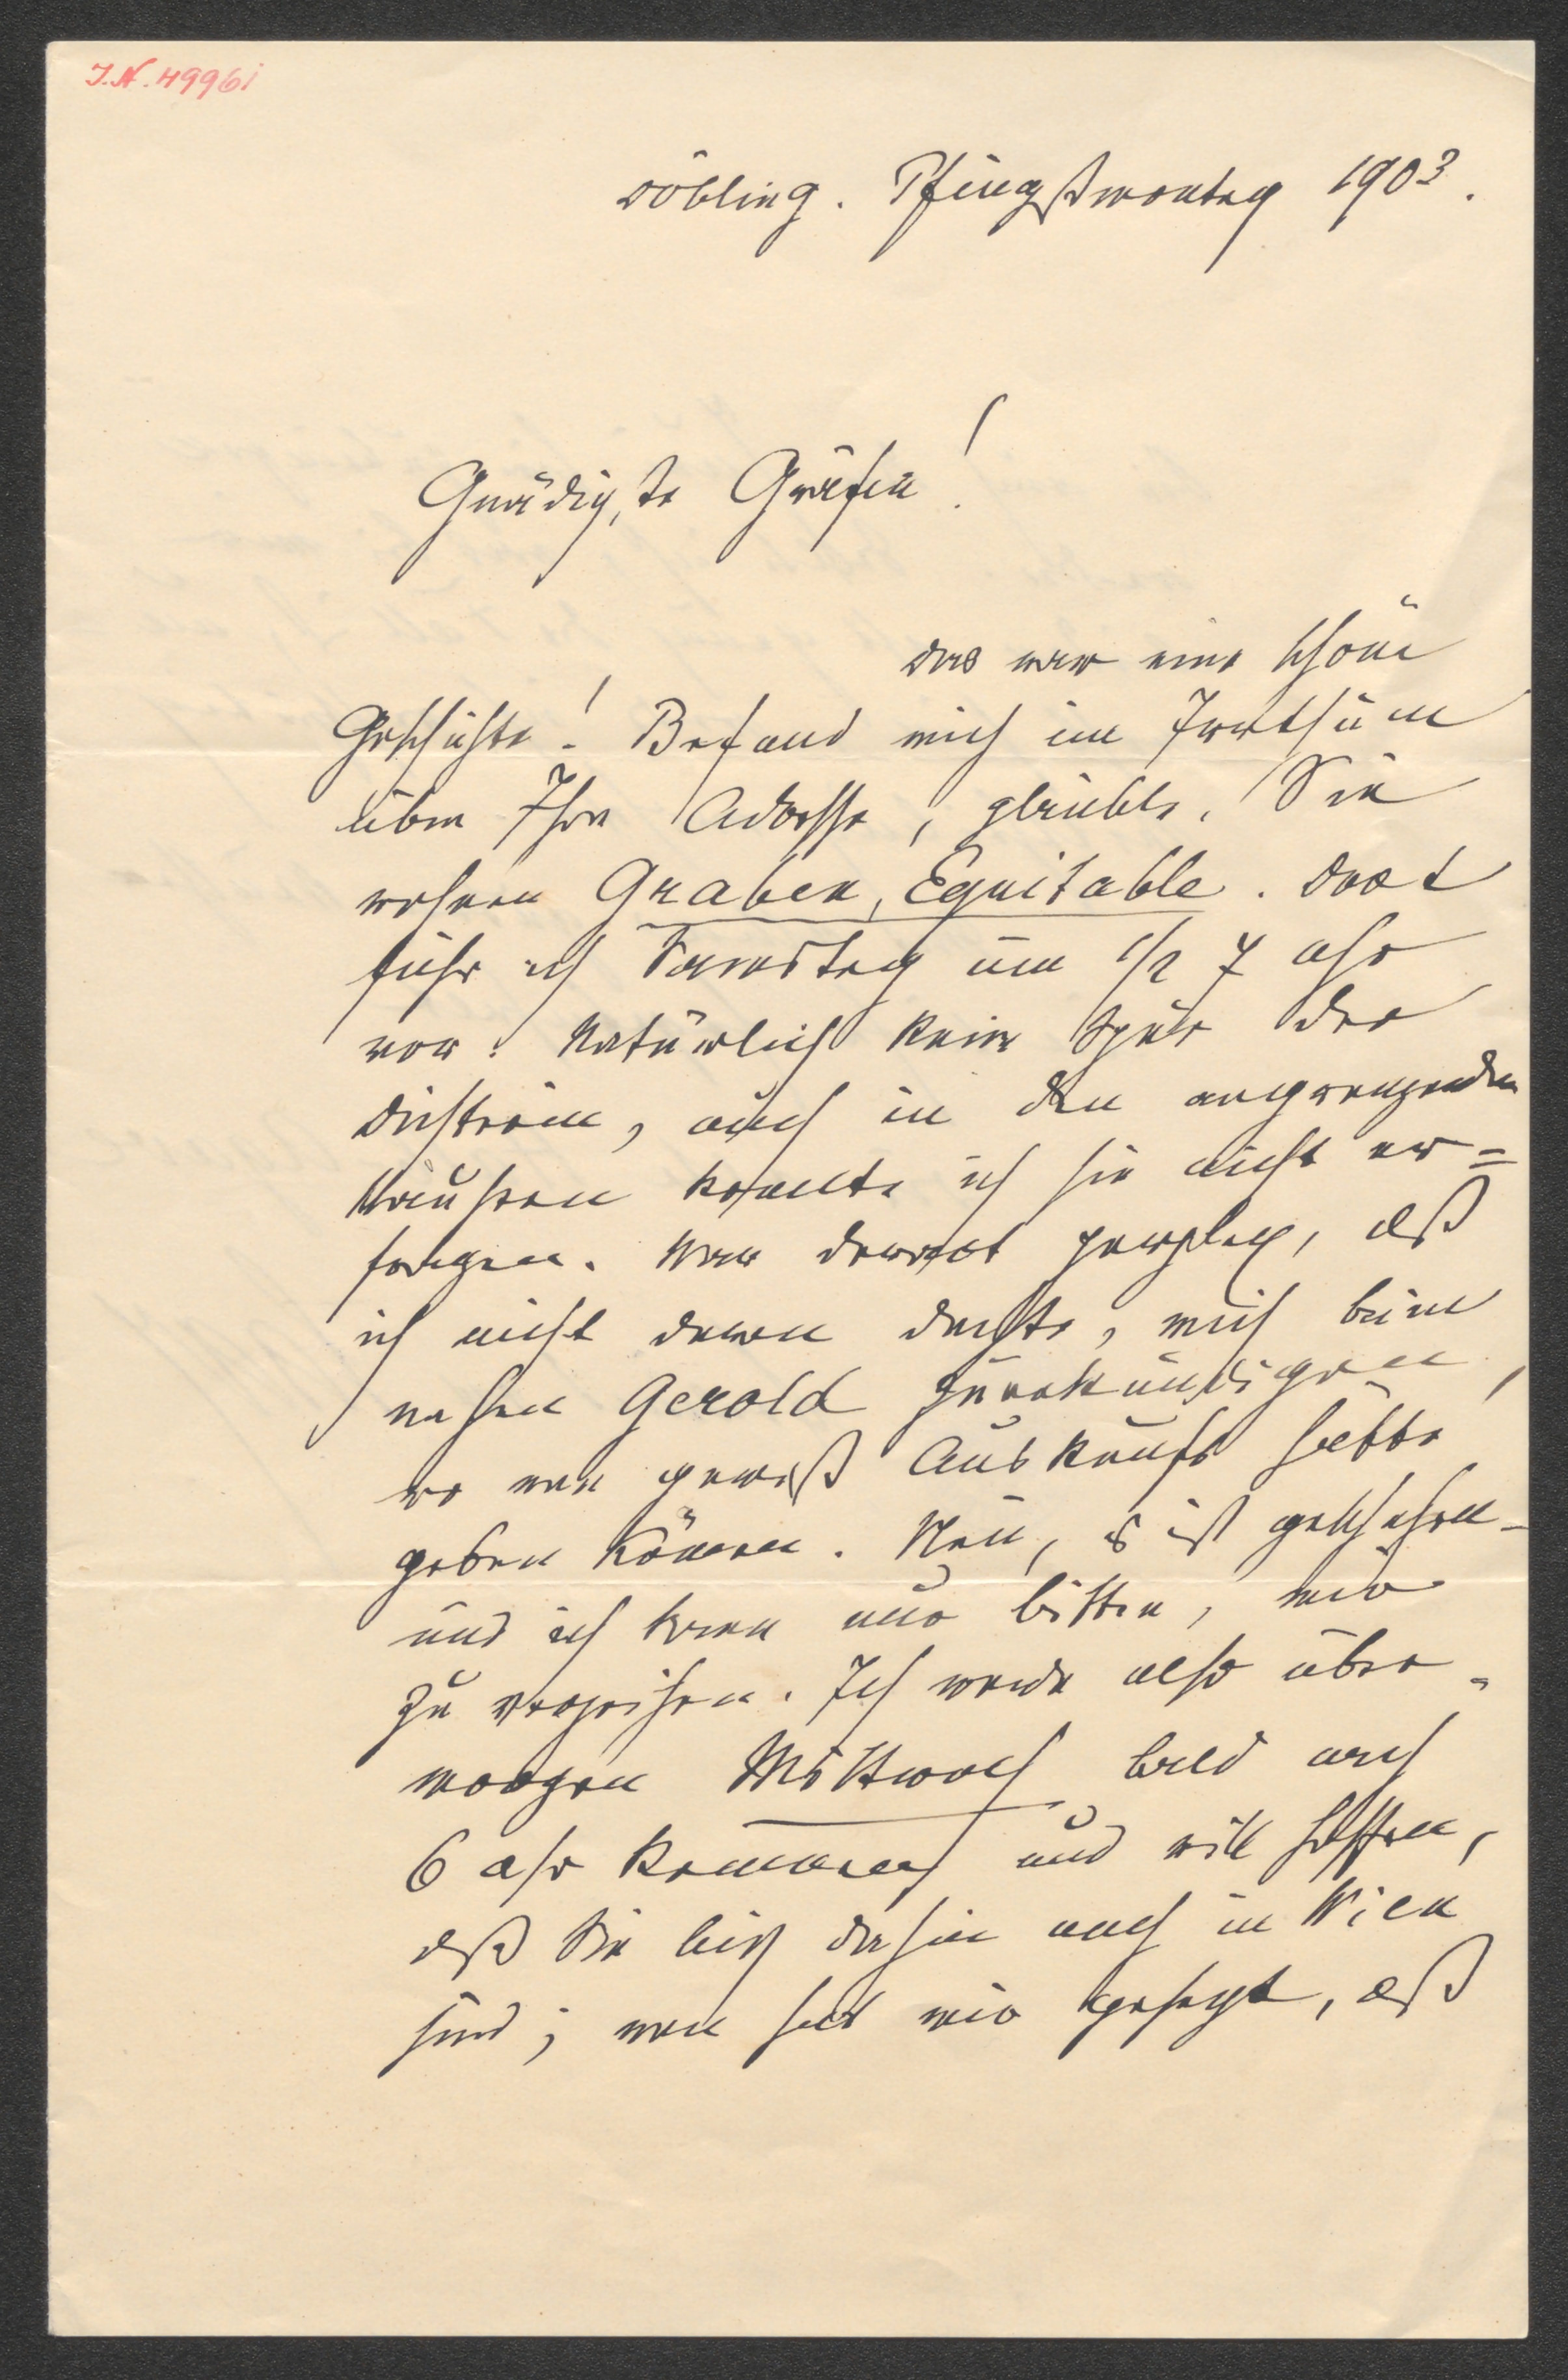 J.N. 49961
Döbling. Pfingstmontag 1903.
Gnädigste Gräfin!
Das war eine schöne
Geschichte! Befand mich im Irrthum
über Ihre Adresse, glaubte, Sie
wohnen Graben, Equitable. Dort
fuhr ich Samstag um 1/2 7 Uhr
vor. Natürlich keine Spur der
Dichterin, auch in den angrenzenden
Häusern konnte ich sie nicht er=
fragen. War derart perplex, daß
ich nicht daran dachte, mich beim
nahen Gerold zu erkundigen,
wo man gewiß Auskunft hätte
geben können. Nun, es ist geschehen -
und ich kann nur bitten, mir
zu verzeihen. Ich werde also über-
morgen Mittwoch bald nach
6 Uhr kommen und will hoffen,
daß Sie bis dahin noch in Wien
sind; man hat mir gesagt, daß